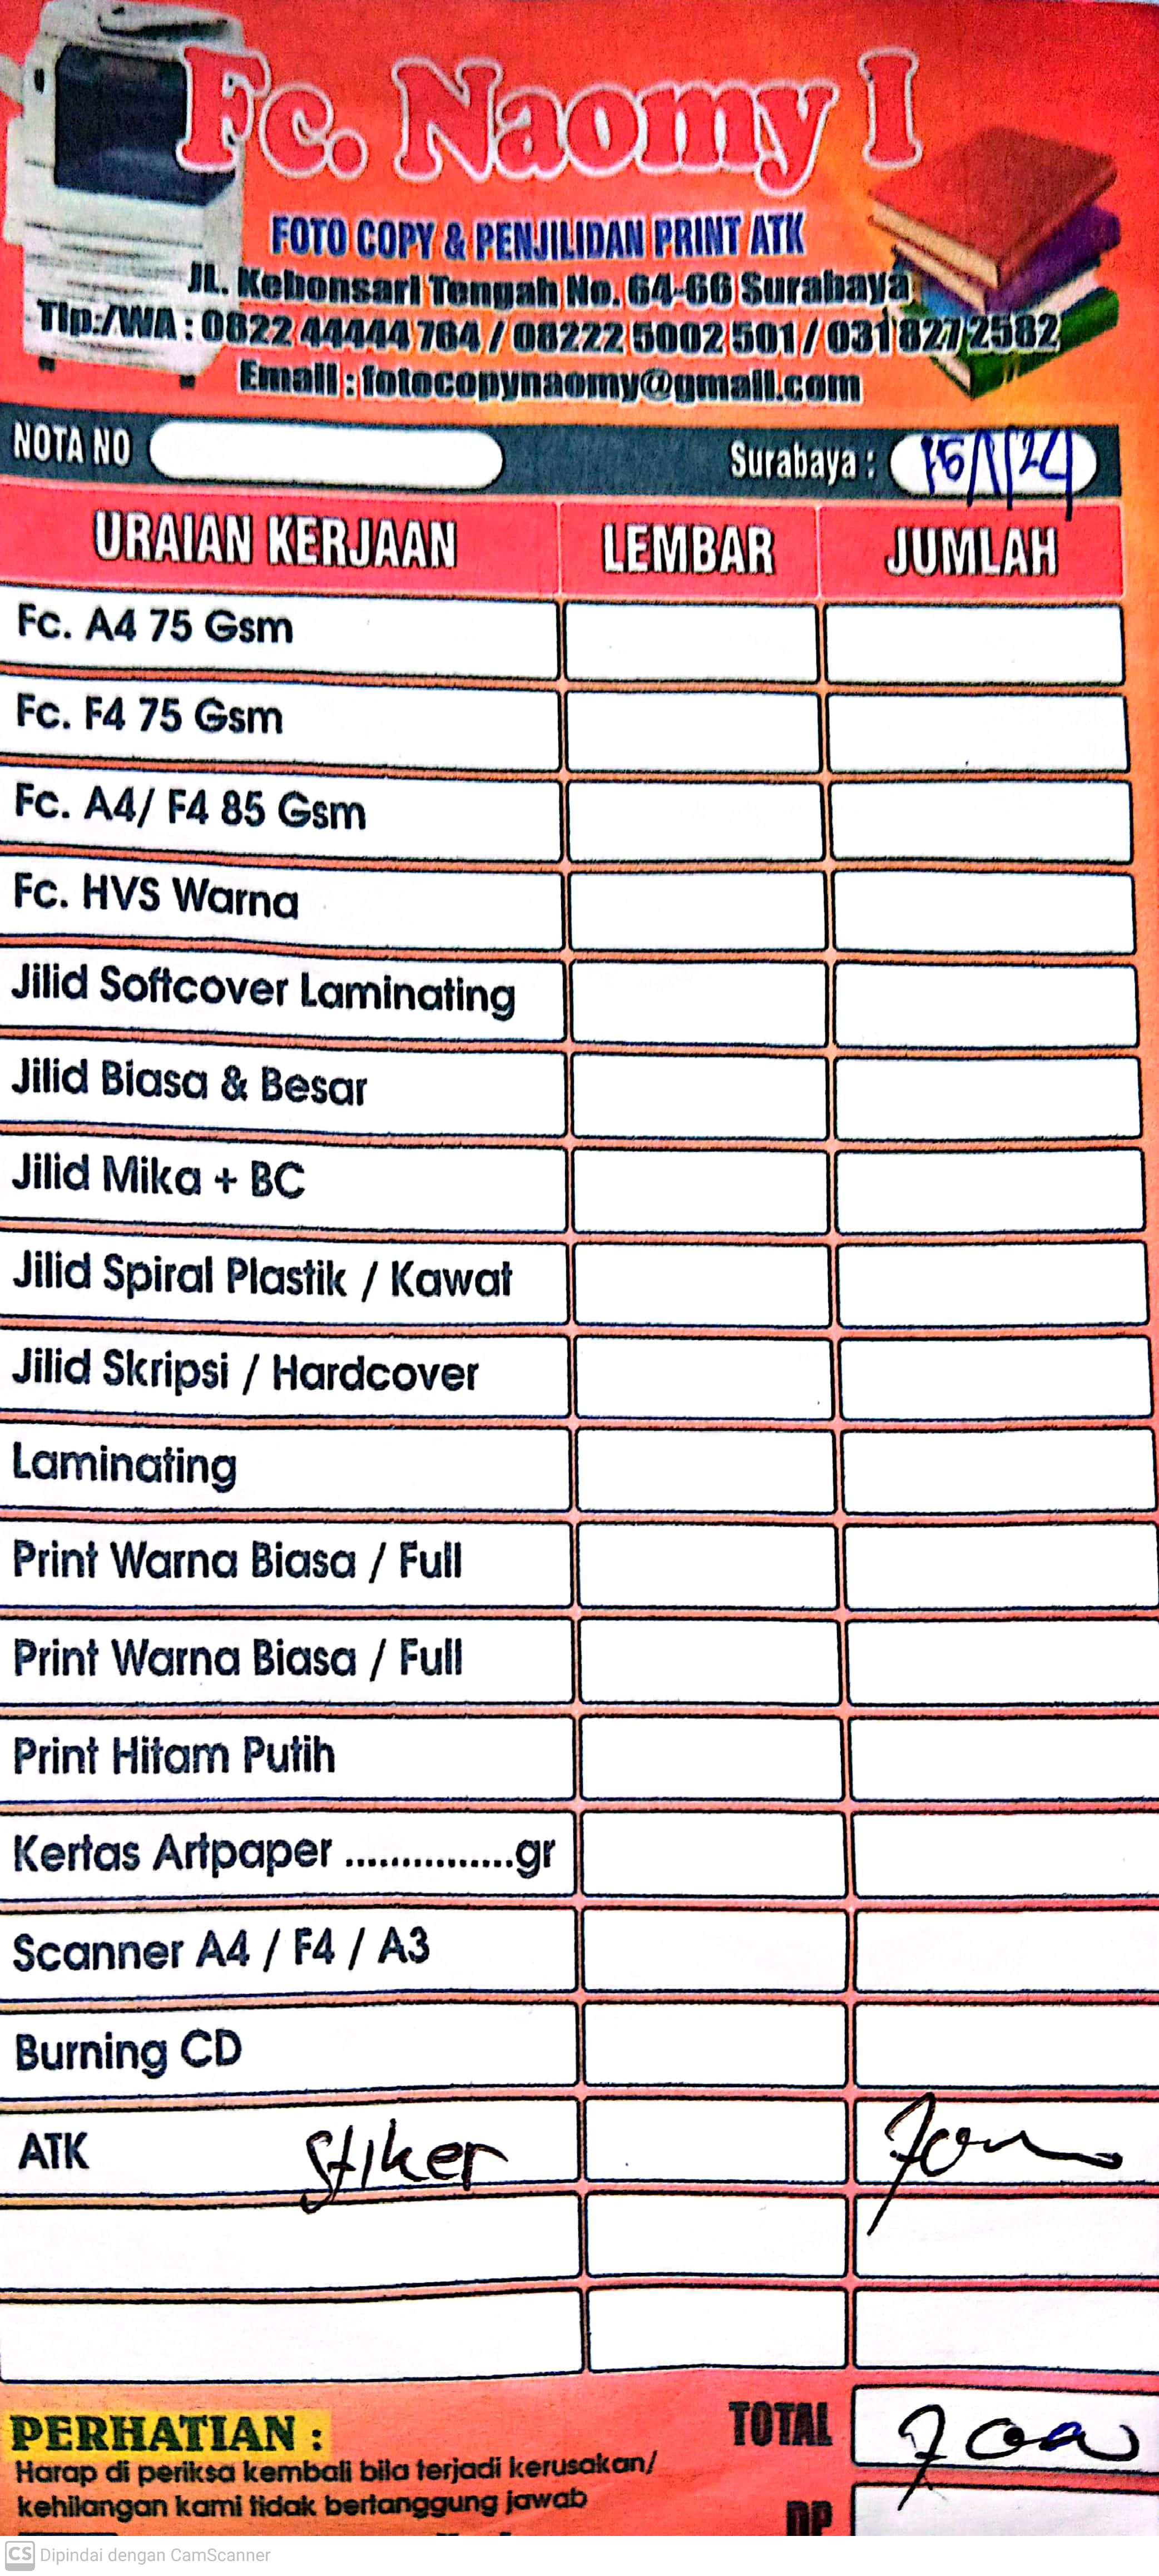 Fc. Naomy 1
FOTO COPY & PENJILIDAN PRINT ATK
JL. Kebonsari Tengah No. 64-66 Surabaya
Tlp:/WA : 0822 44444 764 / 08222 5002 501 / 031 827 2582
Email : fotocopynaomy@gmail.com
NOTA NO Surabaya : 15/1/24
URAIAN KERJAAN LEMBAR JUMLAH
Fc. A4 75 Gsm
Fc. F4 75 Gsm
Fc. A4/ F4 85 Gsm
Fc. HVS Warna
Jilid Softcover Laminating
Jilid Biasa & Besar
Jilid Mika + BC
Jilid Spiral Plastik / Kawat
Jilid Skripsi / Hardcover
Laminating
Print Warna Biasa / Full
Print Warna Biasa / Full
Print Hitam Putih
Kertas Artpaper ...............gr
Scanner A4 / F4 / A3
Burning CD
ATK Stiker
PERHATIAN : TOTAL
Harap di periksa kembali bila terjadi kerusakan/
kehilangan kami tidak bertanggung jawab
DP
CS Dipindai dengan CamScanner